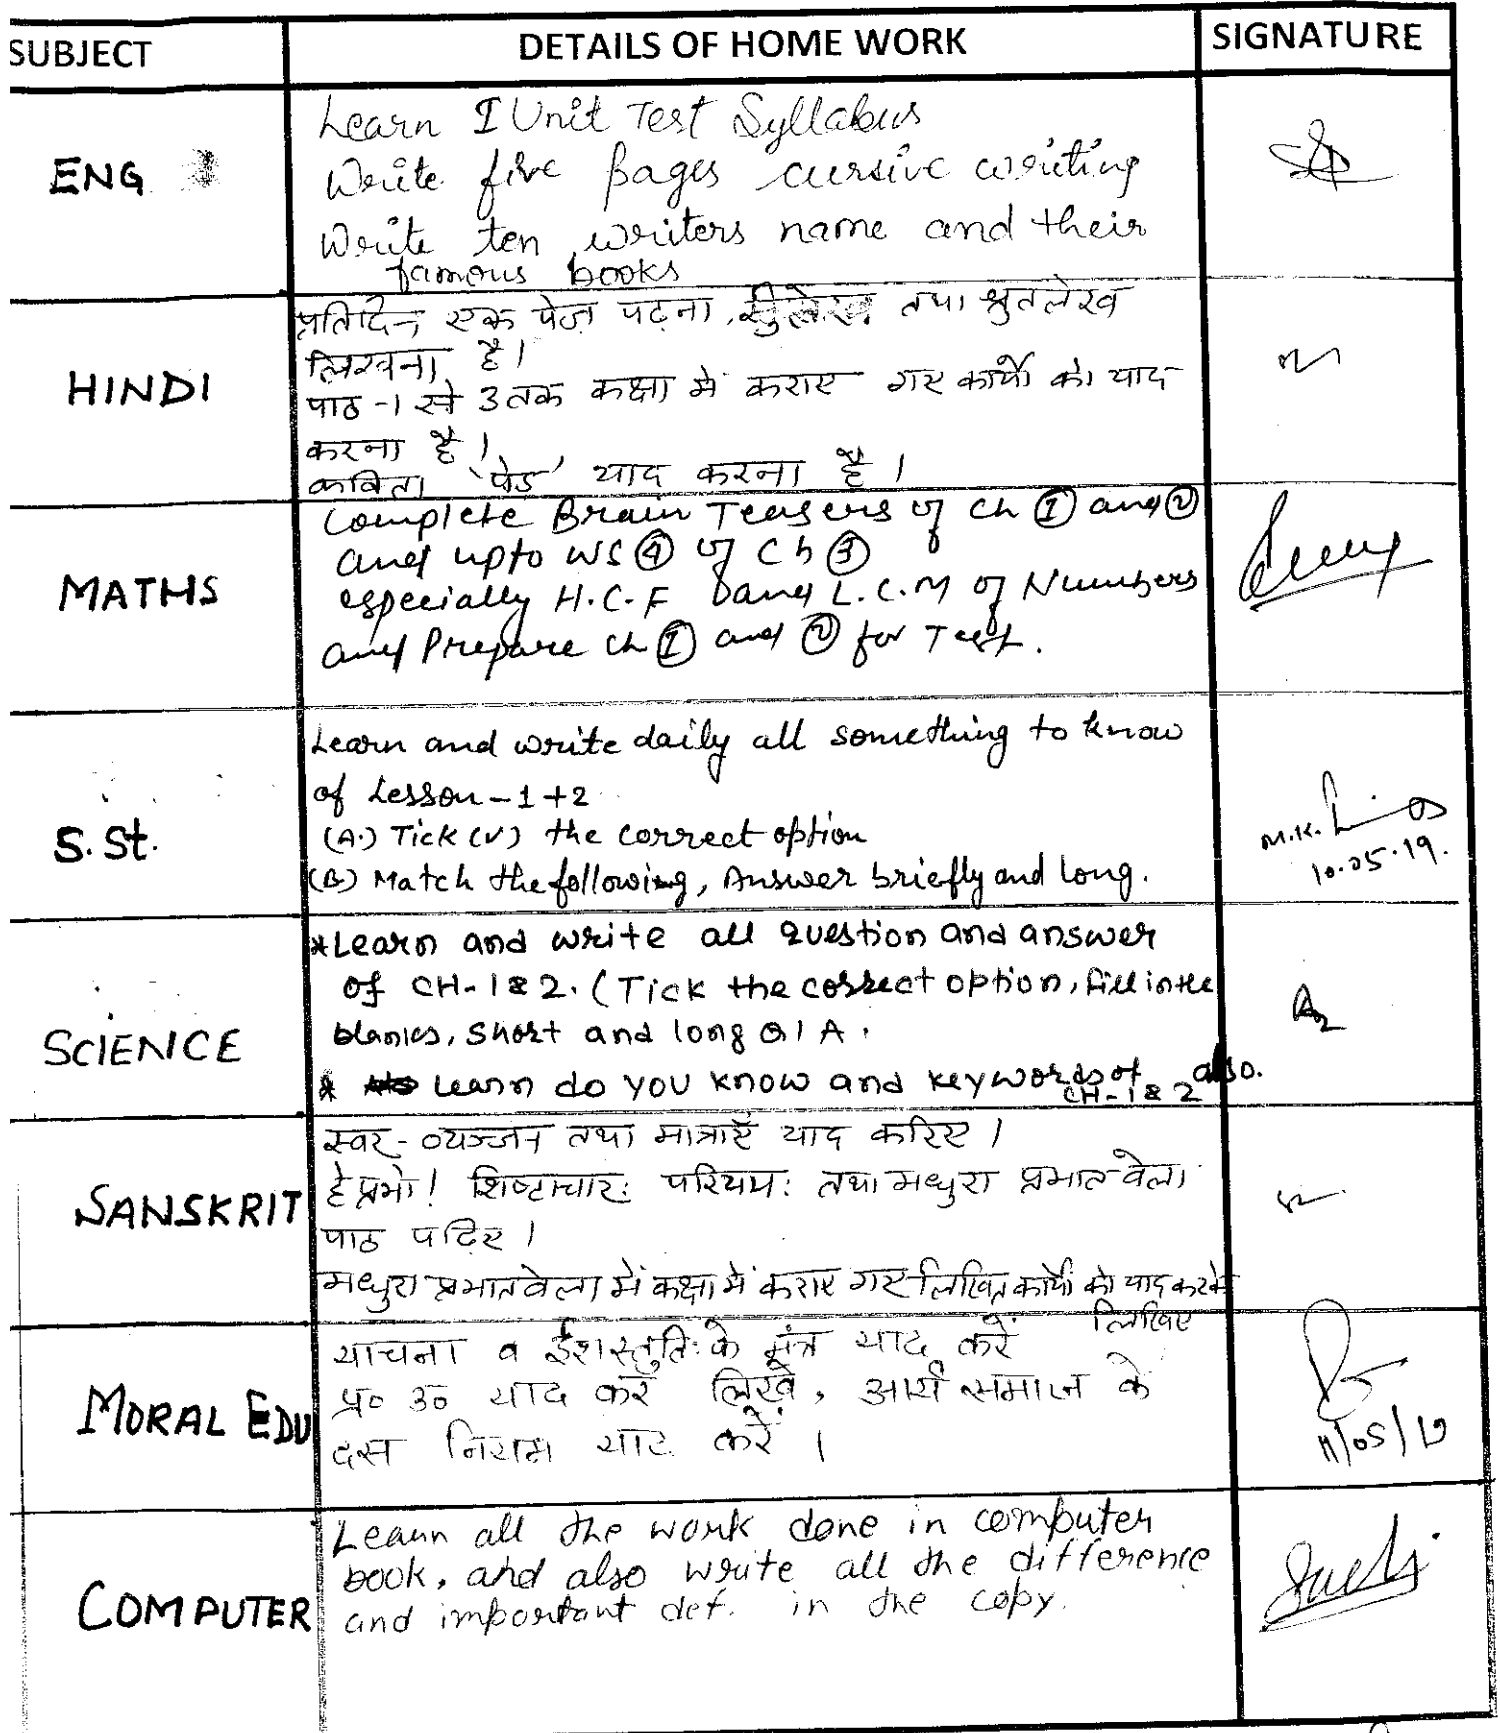 SUBJECT DETAILS OF HOME WORK SIGNATURE
ENG
Learn I Unit Test Syllabus
Write five pages cursive writing
Write ten writers name and their
famous books
HINDI
प्रतिदिन एक पेज पढ़ना, सुलेख तथा श्रुतलेख
लिखना है।
पाठ-1 से 3 तक कक्षा में कराए गए कार्यों को याद
करना है।
कविता 'पेड' याद करना है।
MATHS
Complete Brain Teasers of Ch ① and ②
and upto WS ④ of Ch ③
especially H.C.F and L.C.M of Numbers
and Prepare Ch ① and ② for Test.
S. St.
Learn and write daily all something to know
of Lesson-1+2
(A.) Tick (√) the correct option
(B.) Match the following, Answer briefly and long.
M.K.
10.05.19.
SCIENCE
*Learn and write all question and answer
of CH-1&2. (Tick the correct option, fill in the
blanks, short and long Q/A.
* learn do you know and keywords of CH-1&2 also.
SANSKRIT
स्वर-व्यञ्जन तथा मात्राएँ याद करिए।
हे प्रभो! शिष्टाचारः परिचयः तथा मधुरा प्रभातवेला
पाठ पढ़िए।
मधुरा प्रभातवेला में कक्षा में कराए गए लिखित कार्यों को याद करके
लिखिए
MORAL EDU
याचना व ईशस्तुतिः के मंत्र याद करें
प्र० उ० याद करें लिखें, आर्य समाज के
दस नियम याद करें।
11/05/19
COMPUTER
Learn all the work done in computer
book, and also write all the difference
and important def. in the copy.